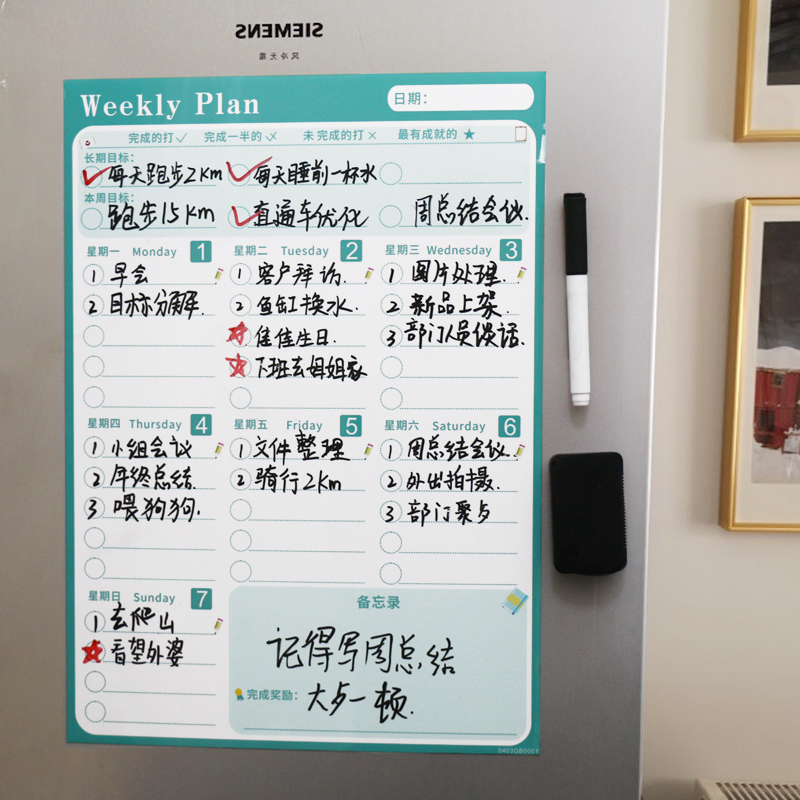 SIEMENS
风冷无霜
Weekly Plan
日期：
完成的打√ 完成一半的 未完成的打× 最有成就的★
长期目标：
每天跑步2Km 每天睡前一杯水
本周目标：
跑步15Km 直通车优化 周总结会议.
星期一 Monday 1
1 早会
2 目标分解.
星期二 Tuesday 2
1 客户拜访.
2 鱼缸换水.
佳佳生日.
下班去姐姐家
星期三 Wednesday 3
1 图片处理.
2 新品上架.
3 部门人员谈话.
星期四 Thursday 4
1 小组会议
2 年终总结.
3 喂狗狗.
星期五 Friday 5
1 文件整理
2 骑行2Km
星期六 Saturday 6
1 周总结会议.
2 外出拍摄.
3 部门聚歺
星期日 Sunday 7
1 去爬山
看望外婆
备忘录
记得写周总结
完成奖励： 大歺一顿.
0403GB0001